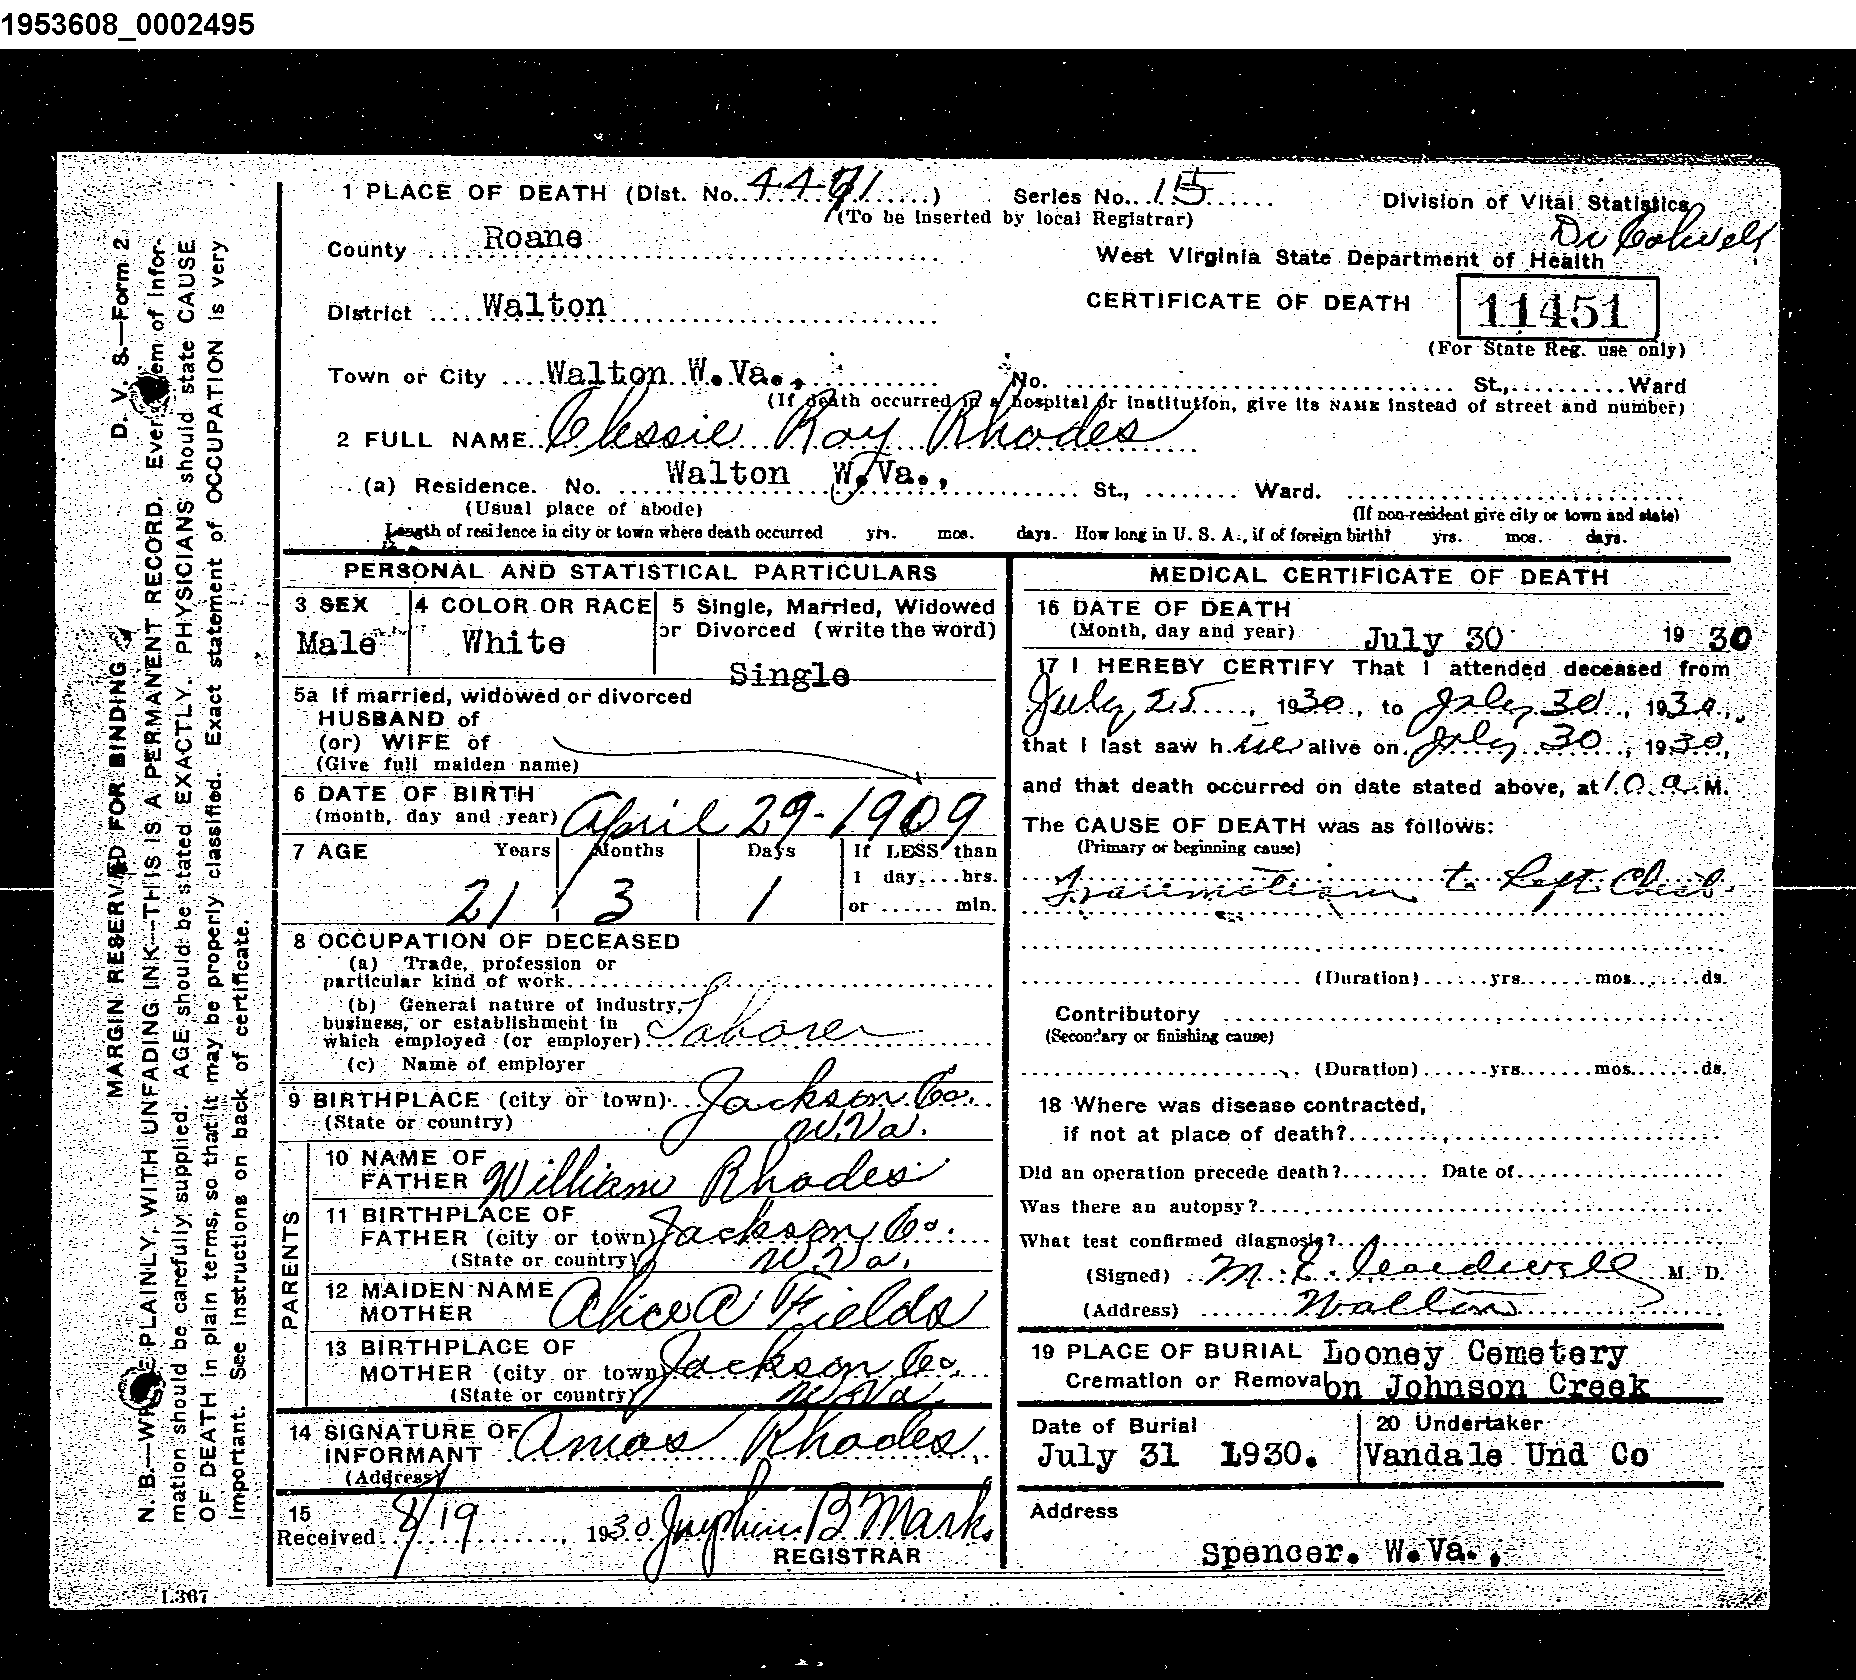 1953608_0002495
1 PLACE OF DEATH (Dist. No. 4471) Series No. 15 Division of Vital Statistics
(To be inserted by local Registrar)
County Roane Dr Colwell
West Virginia State Department of Health
District Walton CERTIFICATE OF DEATH 11451
(For State Reg. use only)
Town or City Walton W.Va., No. St., Ward
(If death occurred in a hospital or institution, give its NAME instead of street and number)
2 FULL NAME Clessie Ray Rhodes
(a) Residence. No. Walton W.Va., St., Ward.
(Usual place of abode) (If non-resident give city or town and state)
Length of residence in city or town where death occurred yrs. mos. days. How long in U. S. A., if of foreign birth? yrs. mos. days.
PERSONAL AND STATISTICAL PARTICULARS
3 SEX 4 COLOR OR RACE 5 Single, Married, Widowed
or Divorced (write the word)
Male White Single
5a If married, widowed or divorced
HUSBAND of
(or) WIFE of
(Give full maiden name)
6 DATE OF BIRTH
(month, day and year) April 29-1909
7 AGE Years Months Days If LESS than
1 day....hrs.
21 3 1 or ...... min.
8 OCCUPATION OF DECEASED
(a) Trade, profession or
particular kind of work
(b) General nature of industry,
business, or establishment in
which employed (or employer) Laborer
(c) Name of employer
9 BIRTHPLACE (city or town) Jackson Co.
(State or country) W.Va.
PARENTS
10 NAME OF
FATHER William Rhodes
11 BIRTHPLACE OF
FATHER (city or town) Jackson Co.
(State or country) W.Va.
12 MAIDEN NAME
MOTHER Alice A Fields
13 BIRTHPLACE OF
MOTHER (city or town) Jackson Co.
(State or country) W.Va
14 SIGNATURE OF
INFORMANT Amos Rhodes
(Address)
15
Received 8/19, 1930 B Marks
REGISTRAR
MEDICAL CERTIFICATE OF DEATH
16 DATE OF DEATH
(Month, day and year) July 30 19 30
17 I HEREBY CERTIFY That I attended deceased from
July 25, 1930, to July 30, 1930,
that I last saw him alive on July 30, 1930,
and that death occurred on date stated above, at 10 a.M.
The CAUSE OF DEATH was as follows:
(Primary or beginning cause)
Traumatism to Left Chest
(Duration) yrs. mos. ds.
Contributory
(Secondary or finishing cause)
(Duration) yrs. mos. ds.
18 Where was disease contracted,
if not at place of death?
Did an operation precede death? Date of
Was there an autopsy?
What test confirmed diagnosis?
(Signed) M. D.
(Address) Walton
19 PLACE OF BURIAL Looney Cemetery
Cremation or Removal on Johnson Creek
Date of Burial 20 Undertaker
July 31 1930. Vandale Und Co
Address
Spencer. W.Va.,
D. V. S.—Form 2
MARGIN RESERVED FOR BINDING
N. B.—WRITE PLAINLY, WITH UNFADING INK—THIS IS A PERMANENT RECORD. Every item of infor-
mation should be carefully supplied. AGE should be stated EXACTLY. PHYSICIANS should state CAUSE
OF DEATH in plain terms, so that it may be properly classified. Exact statement of OCCUPATION is very
important. See instructions on back of certificate.
L367